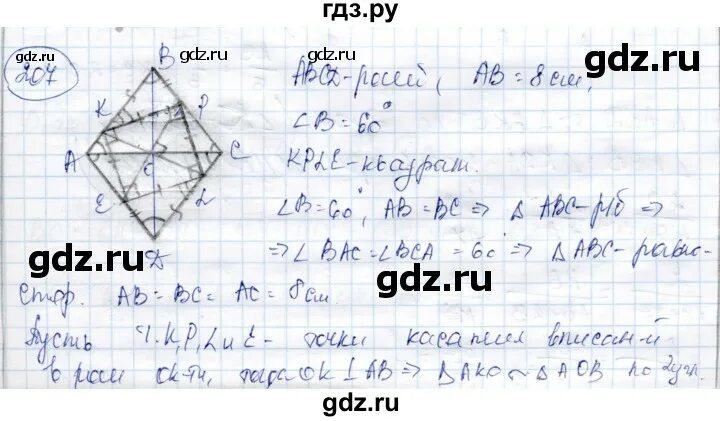 гдз.ру
207
B
K
P
A
C
O
E
L
D
ABCD-ромб, AB = 8 см,
∠B = 60°
KPLE-квадрат.
∠B = 60°, AB = BC ⇒ Δ ABC - р/б ⇒
⇒ ∠BAC = ∠BCA = 60° ⇒ Δ ABC - равно-
стор. AB = BC = AC = 8 см.
Пусть т. K, P, L и E - точки касания вписан-й
в ромб окр-ти, тогда OK ⊥ AB ⇒ Δ AKO ~ Δ AOB по 2 угл.
gdz.ru
gdz.ru
gdz.ru
gdz.ru
gdz.ru
gdz.ru
gdz.ru
gdz.ru
gdz.ru
gdz.ru
gdz.ru
gdz.ru